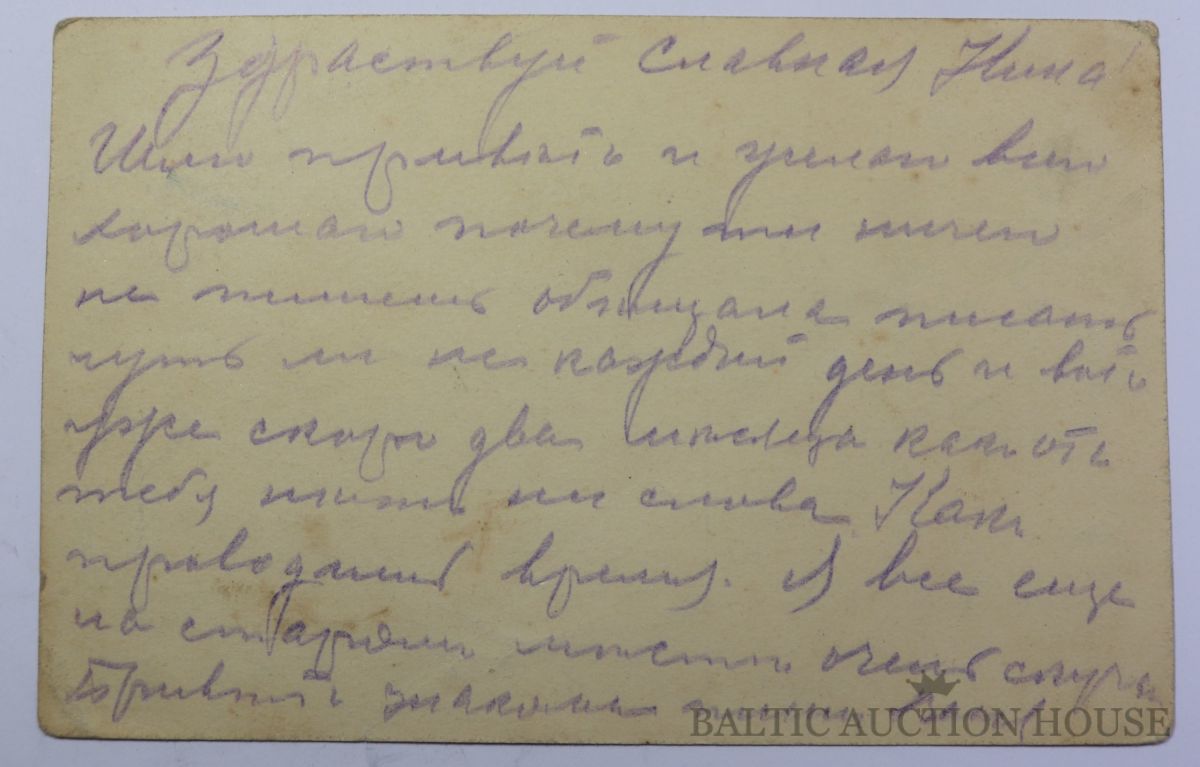 Здраствуй Славная Нина!
Шлю привѣтъ и желаю всего
хорошаго почему ты ничего
не пишешь обѣщала писать
чуть ли не каждый день и вотъ
уже скоро два мѣсяца какъ отъ
тебя нѣтъ ни слова. Какъ
проводишь время. Я все еще
на старомъ мѣстѣ очень скучно
Привѣтъ знакомымъ
BALTIC AUCTION HOUSE